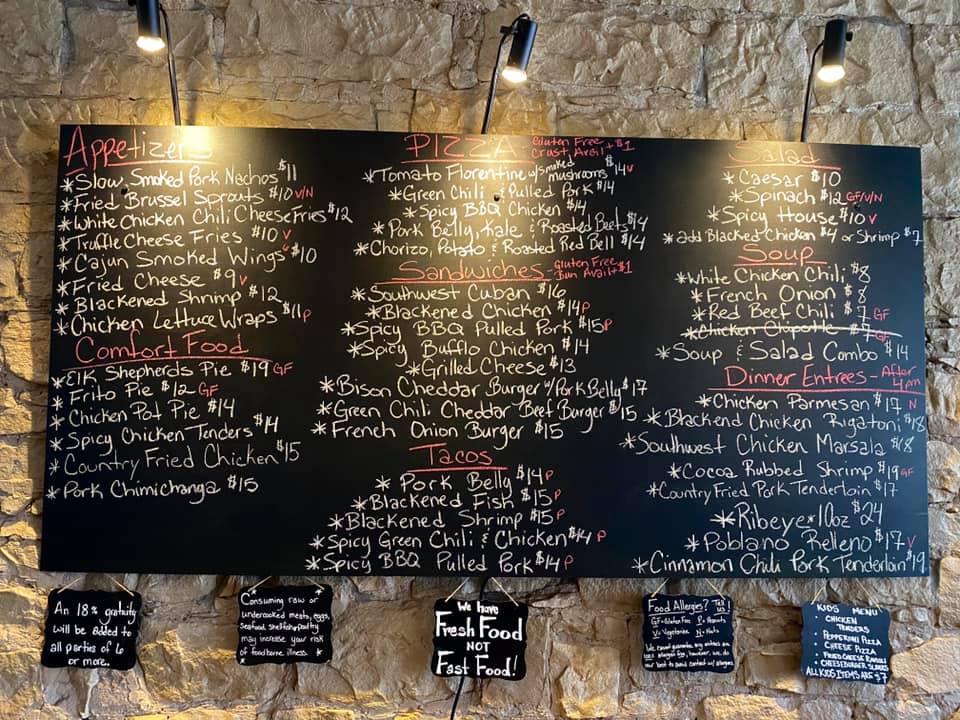 Appetizers
*Slow Smoked Pork Nachos $11
*Fried Brussel Sprouts $10 V/N
*White Chicken Chili Cheese Fries $12
*Truffle Cheese Fries $10 V
*Cajun Smoked Wings $10
*Fried Cheese $9 V
*Blackened Shrimp $12
*Chicken Lettuce Wraps $11 P
Comfort Food
*Elk Shepherds Pie $19 GF
*Frito Pie $12 GF
*Chicken Pot Pie $14
*Spicy Chicken Tenders $14
*Country Fried Chicken $15
*Pork Chimichanga $15
PIZZA Gluten Free
Crust Avail + $1
*Tomato Florentine w/smoked mushrooms $14 V
*Green Chili & Pulled Pork $14
*Spicy BBQ Chicken $14
*Pork Belly, Kale & Roasted Beets $14
*Chorizo, Potato & Roasted Red Bell $14
Sandwiches - Gluten Free
Bun Avail + $1
*Southwest Cuban $16
*Blackened Chicken $14 P
*Spicy BBQ Pulled Pork $15 P
*Spicy Bufflo Chicken $14
*Grilled Cheese $13
*Bison Cheddar Burger w/Pork Belly $17
*Green Chili Cheddar Beef Burger $15
*French Onion Burger $15
Tacos
*Pork Belly $14 P
*Blackened Fish $15 P
*Blackened Shrimp $15 P
*Spicy Green Chili & Chicken $14 P
*Spicy BBQ Pulled Pork $14 P
Salad
*Caesar $10
*Spinach $12 GF/V/N
*Spicy House $10 V
*add Blacked Chicken $4 or Shrimp $7
Soup
*White Chicken Chili $8
*French Onion $8
*Red Beef Chili $7 GF
*Chicken Chipotle $7 GF
*Soup & Salad Combo $14
Dinner Entrees - After
4pm
*Chicken Parmesan $17 N
*Blackend Chicken Rigatoni $18
*Southwest Chicken Marsala $18
*Cocoa Rubbed Shrimp $19 GF
*Country Fried Pork Tenderloin $17
*Ribeye*10oz $24
*Poblano Relleno $17 V
*Cinnamon Chili Pork Tenderloin $19
An 18% gratuity
will be added to
all parties of 6
or more.
*Consuming raw or
undercooked meats, eggs,
seafood, shellfish or poultry
may increase your risk
of foodborne illness.*
We have
Fresh Food
NOT
Fast Food!
Food Allergies? Tell us!
GF=Gluten Free P=Peanuts
V=Vegetarian N=Nuts
We cannot guarantee any entrees are
100% allergen free, however, we do
our best to avoid contact w/ allergens
KIDS MENU
• CHICKEN
TENDERS
• PEPPERONI PIZZA
• CHEESE PIZZA
• FRIED CHEESE RAVIOLI
• CHEESEBURGER SLIDERS
ALL KIDS ITEMS ARE $7